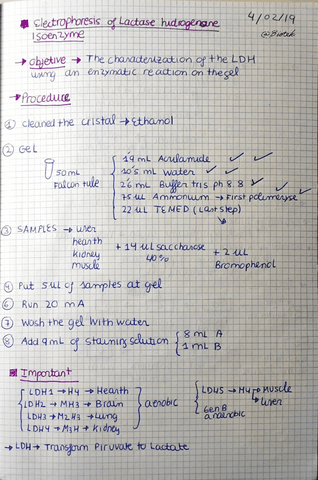 4/02/19
■ Electrophoresis of Lactase hidrogenase
Isoenzyme
@Biotek
→ Objetive → The characterization of the LDH
using an enzymatic reaction on the gel
→ Procedure
① Cleaned the cristal → Ethanol
② Gel
50 mL
Falcon tule
1'9 mL Acrilamide ✓ ✓
10'5 mL water ✓ ✓
2'6 mL Buffer tris ph 8.8 ✓ ✓
75 uL Ammonium → First polimeryse ✓
22 uL TEMED (Last step)
③ SAMPLES → liver
hearth
kidney
muscle
+ 14 uL saccharose
40%
+ 2 uL
Bromophenol
④ Put 5 uL of samples at gel
⑥ Run 20 mA
⑦ Wash the gel with water
⑧ Add 9 mL of staining solution
8 mL A
1 mL B
■ Important
LDH1 → H4 → Hearth
LDH2 → MH3 → Brain
LDH3 → M2H3 → Lung
LDH4 → M3H → Kidney
aerobic
LDH5 → H4 → Muscle
→ Liver
Gen B
anaerobic
→ LDH → Transform Piruvate to Lactate